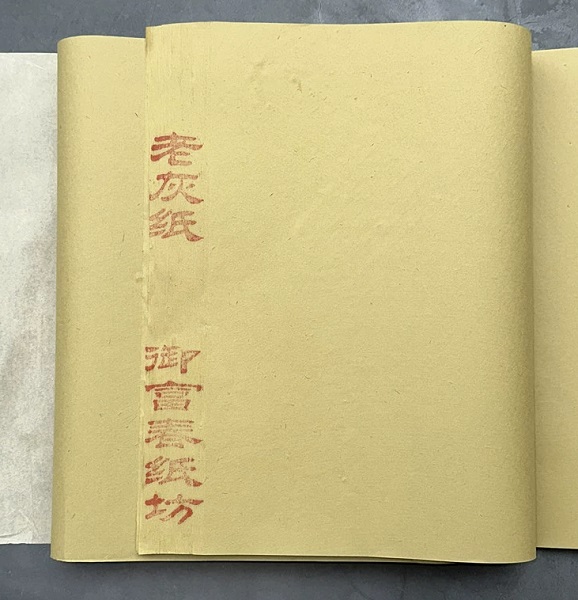 老灰纸
御富春纸坊